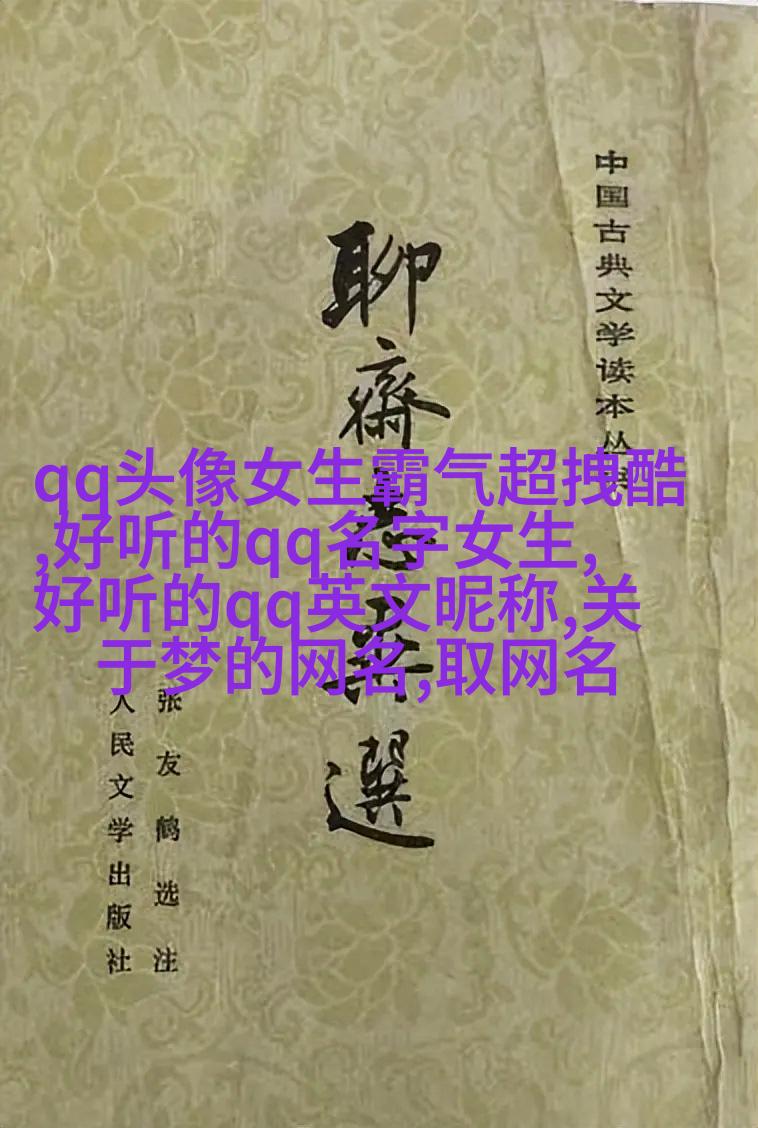 中国古典文学读本丛书
聊齋志異選
张友鹤选注
人民文学出版社
qq头像女生霸气超拽酷
,好听的qq名字女生,
好听的qq英文昵称,关
于梦的网名,取网名